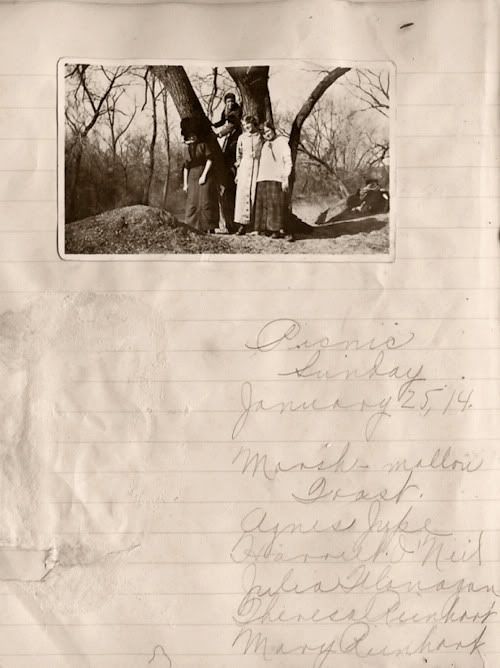 Picnic
Sunday
January 25, 14.
Marsh-mallow
Toast.
Agnes Juke
Harriet O'Neil
Julia Flanagan
Theresa Rinhart
Mary Rinhart